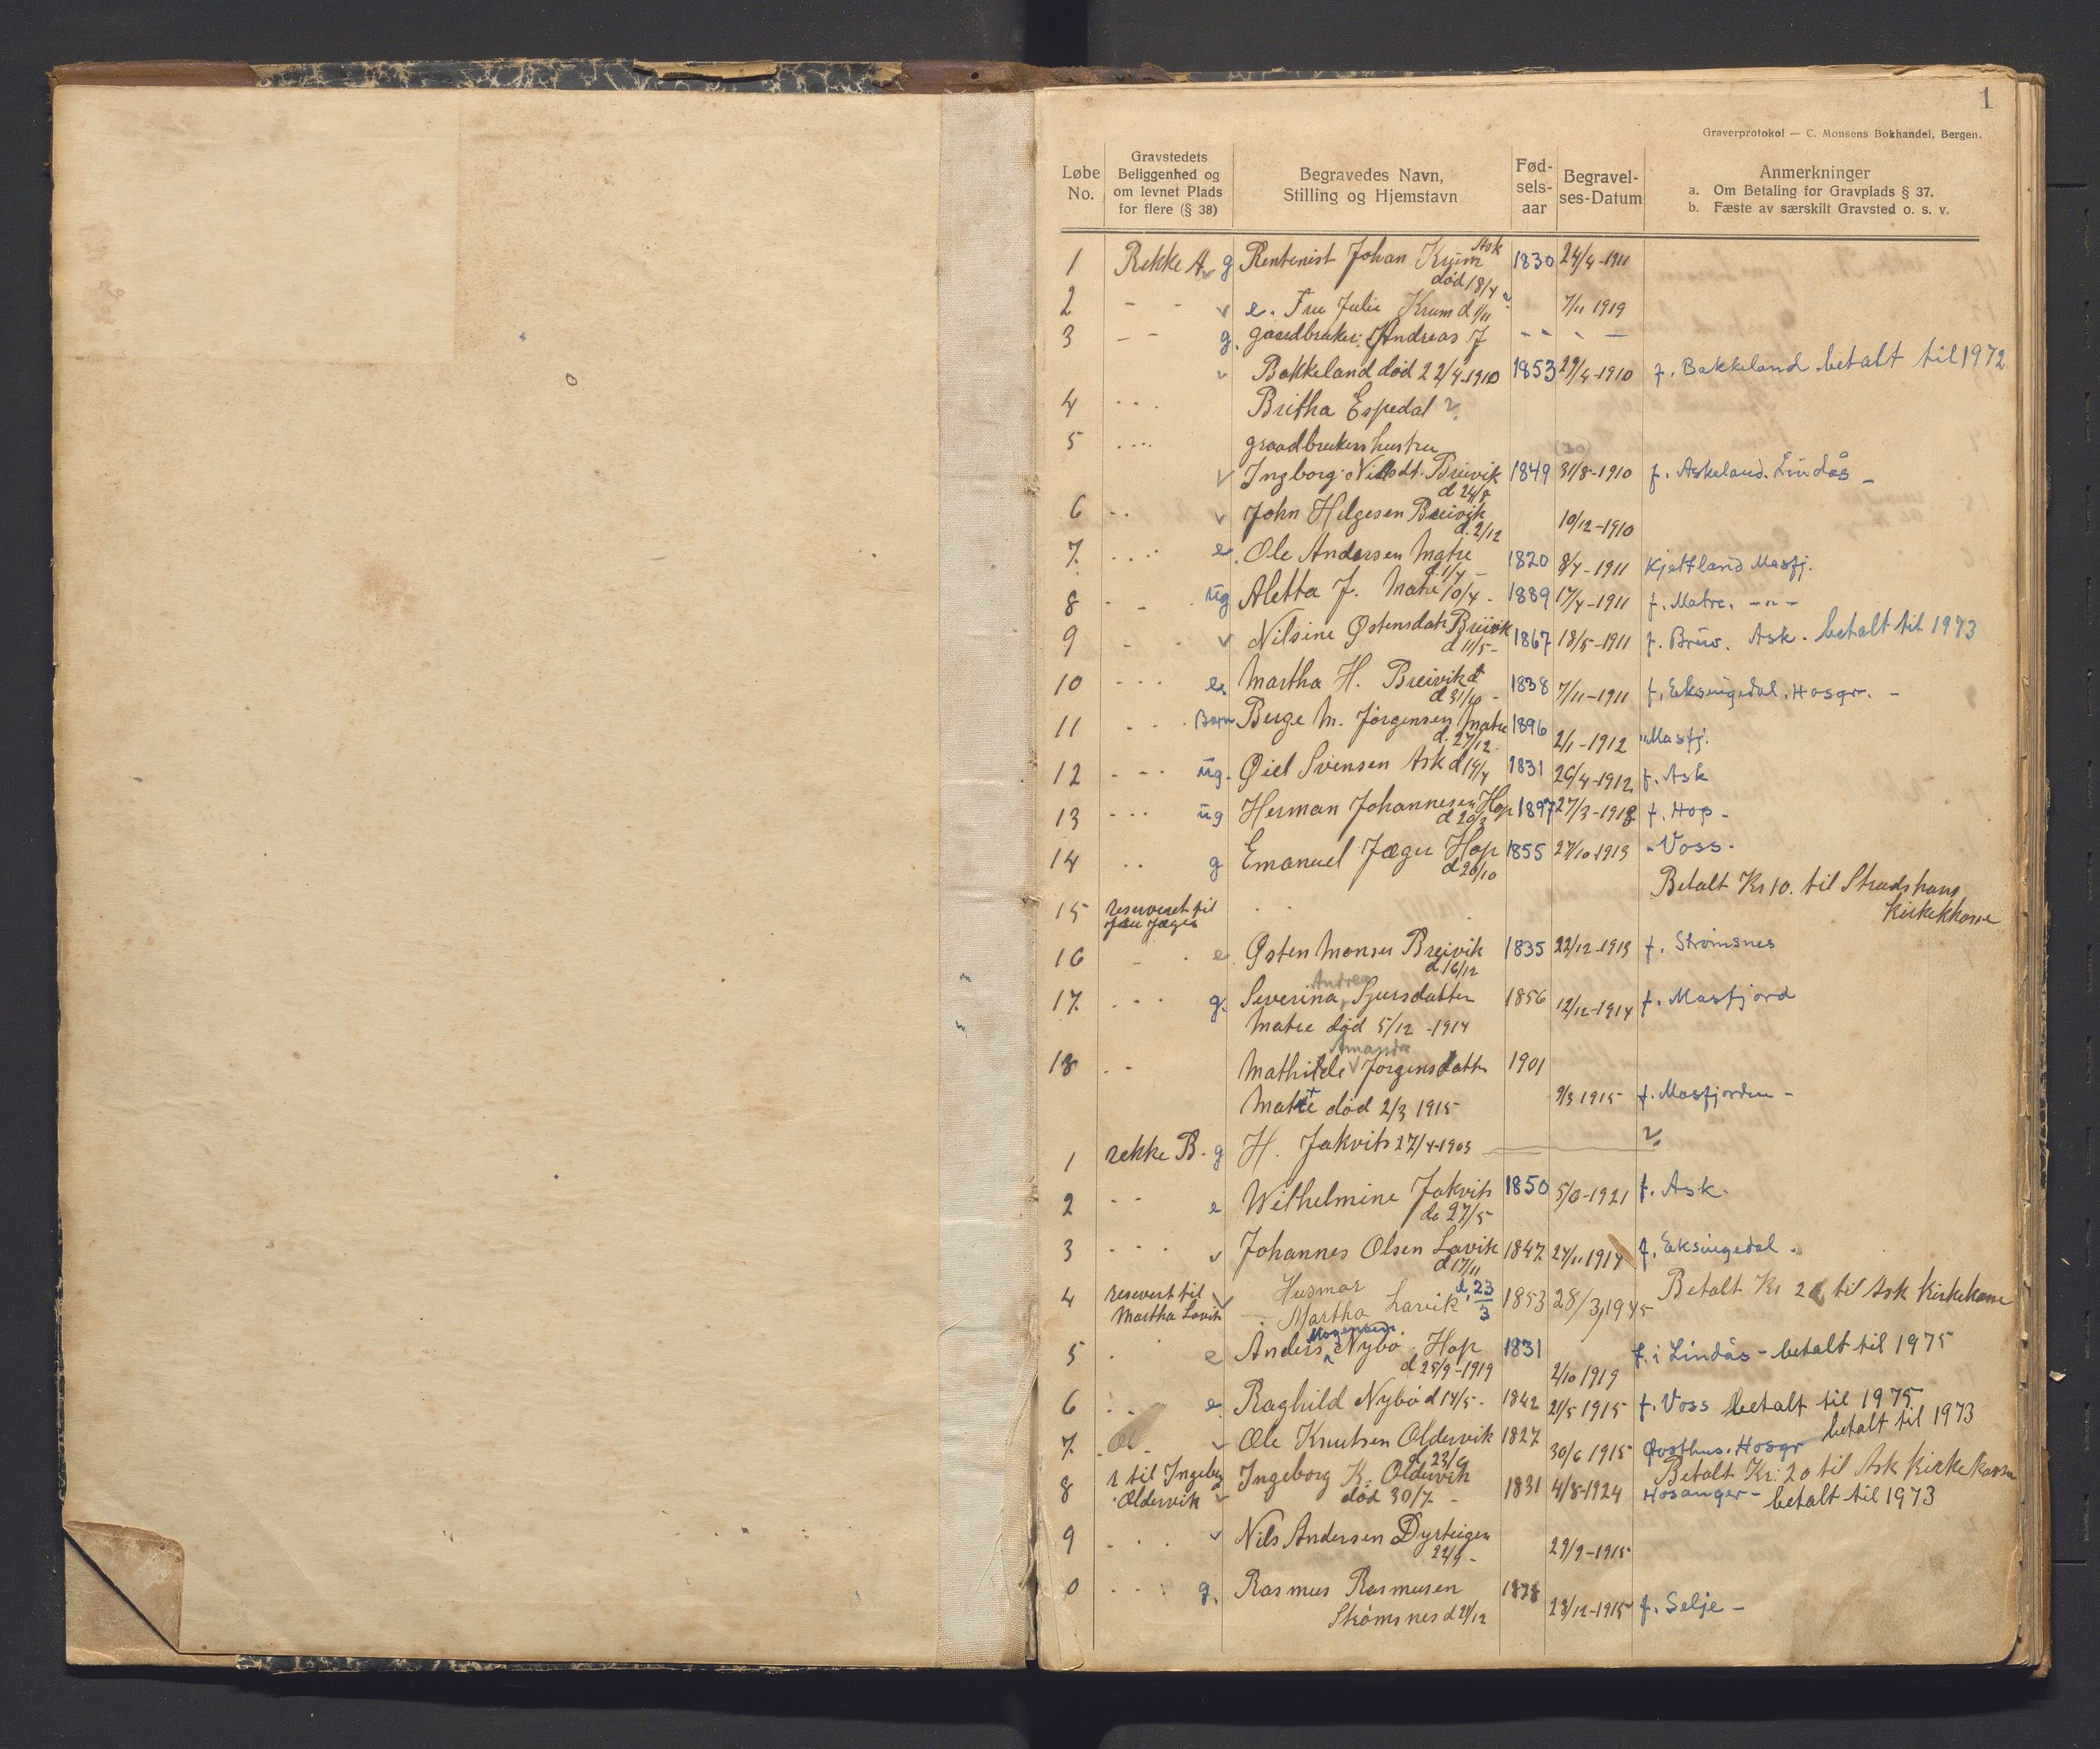 1
Graverprotokol — C. Monsens Bokhandel, Bergen.
Løbe No.
Gravstedets Beliggenhed og om levnet Plads for flere (§ 38)
Begravedes Navn, Stilling og Hjemstavn
Fød-sels-aar
Begravel-ses-Datum
Anmerkninger
a. Om Betaling for Gravplads § 37.
b. Fæste av særskilt Gravsted o. s. v.
1 Rekke A g Rentenist Johan Krum Ask 1830 24/4-1911
død 18/4
2 - - v e. Fru Julie Krum d 1/11 7/11 1919
3 - - g. gaardbruker Andreas J - - - -
v Bakkeland død 22/4-1910 1853 29/4-1910 f. Bakkeland betalt til 1972
4 - - - Britha Espedal
5 - - - graadbrukershustru
v Ingborg Nilsdt. Breivik 1849 31/8-1910 f. Askeland. Lindås -
d 24/8
6 - - v John Helgesen Breivik 10/12-1910
d. 2/12
7. - - - e. Ole Andersen Matre 1820 8/4-1911 Kjetland Masfj.
d. 1/4 -
8 - - ug Aletta J. Matre 10/4 - 1889 17/4-1911 f. Matre. -"-
9 - - v Nilsine Østensdatr Breivik 1867 18/5-1911 f. Breiv. Ask. betalt til 1973
d 11/5-
10 - - - e. Martha H. Breivik 1838 7/11-1911 f. Eksingedal. Hosgr. -
d 31/10 -
11 - - - Barn Berge M. Jørgensen Matre 1896 2/1-1912 " Masfj.
d. 27/12.
12 - - - ug. Øiel Svensen Ask d 19/4 1831 26/4-1912 f. Ask
13 - - - ug Herman Johannesen Hop 1897 27/3-1918 f. Hop -
d 20/3
14 - - g Emanuel Jæger Hop 1855 27/10-1913 - Voss.
d 20/10
Betalt Kr 10. til Strudshavn
15 reserveret til kirkekasse
Fru Jæger
16 - - e Østen Monsen Breivik 1835 22/12-1913 f. Strømsnes
d 16/12
Andrea
17. - - - g. Severina Sjursdatter 1856 12/12-1914 f. Masfjord
Matre død 5/12 -1914
Amanda
18 - - Mathilde Jørgensdatter 1901
Matre død 2/3 1915 9/3 1915 f. Masfjorden -
1 rekke B. g H. Jakvits 27/4-1903
2 - - e Wilhelmine Jakvits 1850 1921 f. Ask.
d. 27/5
3 - - - v Johannes Olsen Lavik 1847 24/11 1914 f. Eksingedal.
d 17/11
4 reservert til v Husmor d. 23/3 Betalt Kr 20 til Ask Kirkekasse
Martha Lavik Martha Lavik 1853 28/3, 1945
Mogensen
5 - e Anders Nybø Hop 1831 f. i Lindås - betalt til 1975
d 25/9-1919 2/10 1919
6 - - e. Raghild Nybø d 14/5 - 1842 21/5 1915 f. Voss betalt til 1975
7. - - v Ole Knutsen Oldervik 1827 30/6 1915 Hosgr betalt til 1973
d 23/6
8 r til Ingeborg Ingeborg K. Oldervik 1831 4/8-1924 Betalt Kr. 20 til Ask Kirkekasse
Oldervik v død 30/7. - Hosanger - betalt til 1973
9 - - - v Nils Andersen Dyrteigen 29/9-1915
22/9 -
0 - - - g. Rasmus Rasmusen 1878
Strømsnes d 21/12 28/12-1915 f. Selje -